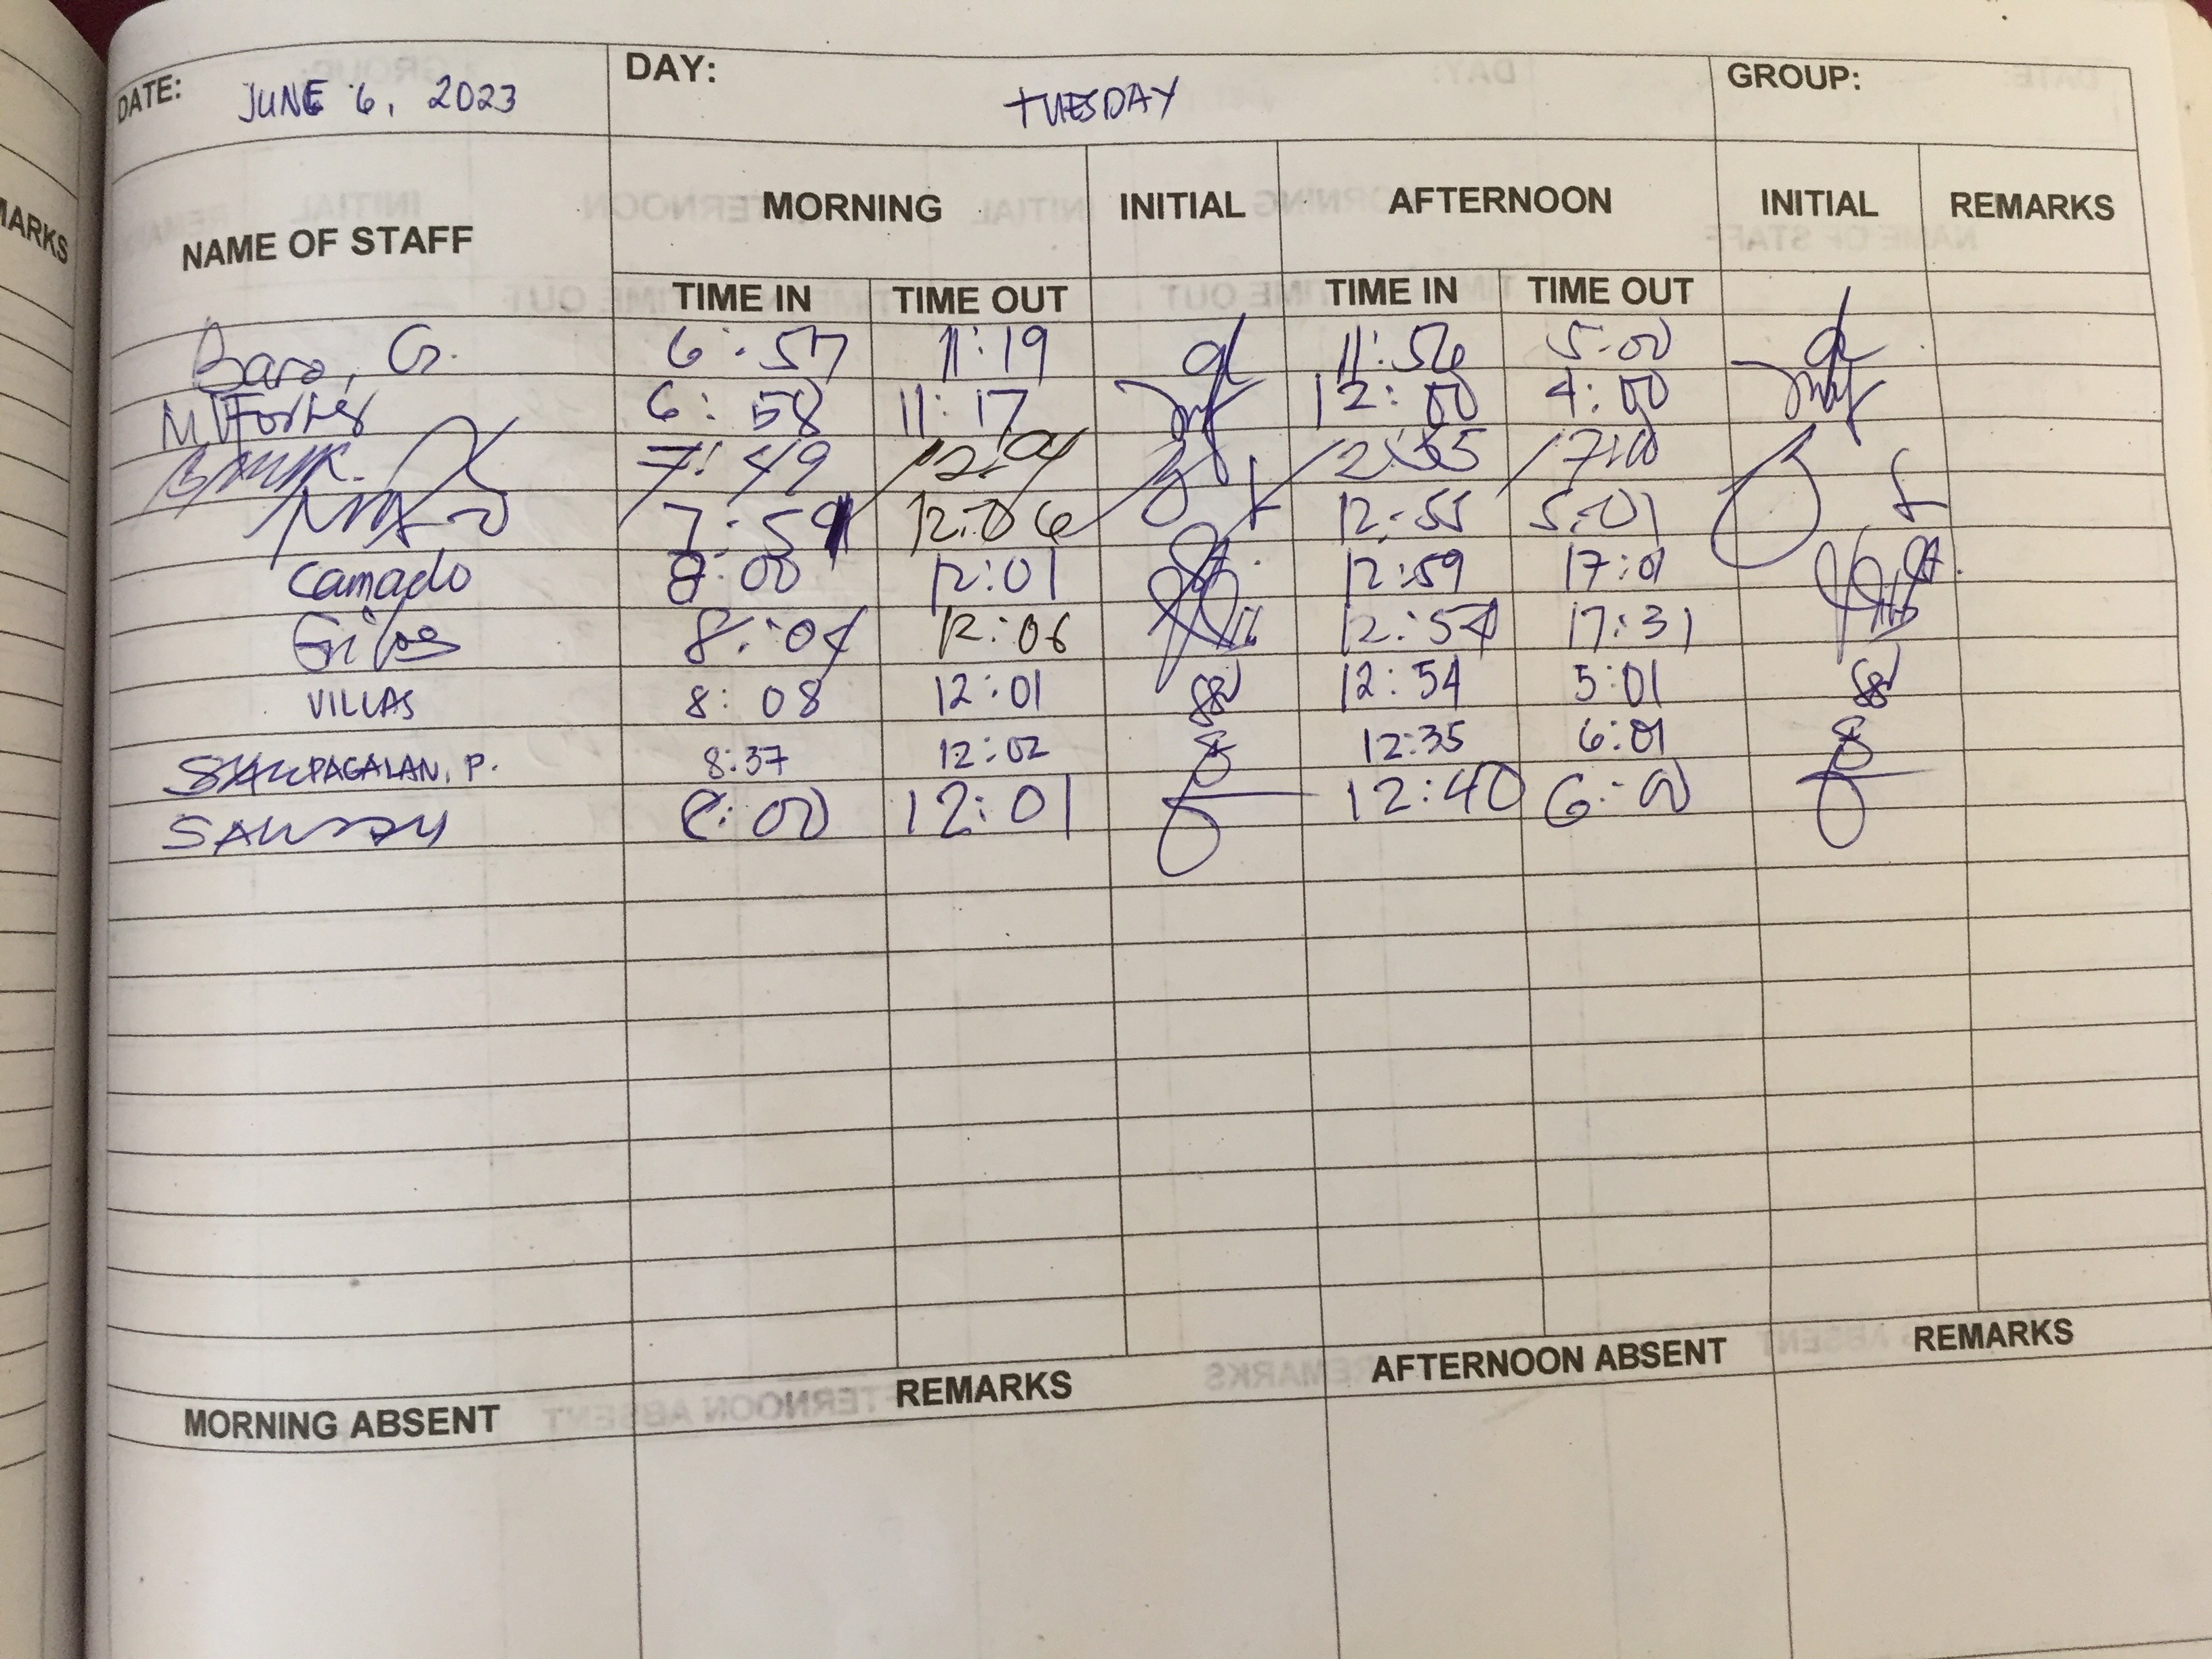 MARKS
DATE: JUNE 6, 2023 DAY: TUESDAY GROUP:
NAME OF STAFF MORNING INITIAL AFTERNOON INITIAL REMARKS
TIME IN TIME OUT TIME IN TIME OUT
Baro, G. 6:57 11:19 11:56 5:00
M. Fortes 6:58 11:17 12:00 4:00
7:49 12:04 12:55 17:00
7:59 12:06 12:55 5:01
Camado 8:00 12:01 12:59 17:01
8:04 12:06 12:54 17:31
VILLAS 8:08 12:01 12:54 5:01
PAGALAN, P. 8:37 12:02 12:35 6:01
8:00 12:01 12:40 6:00
MORNING ABSENT REMARKS AFTERNOON ABSENT REMARKS